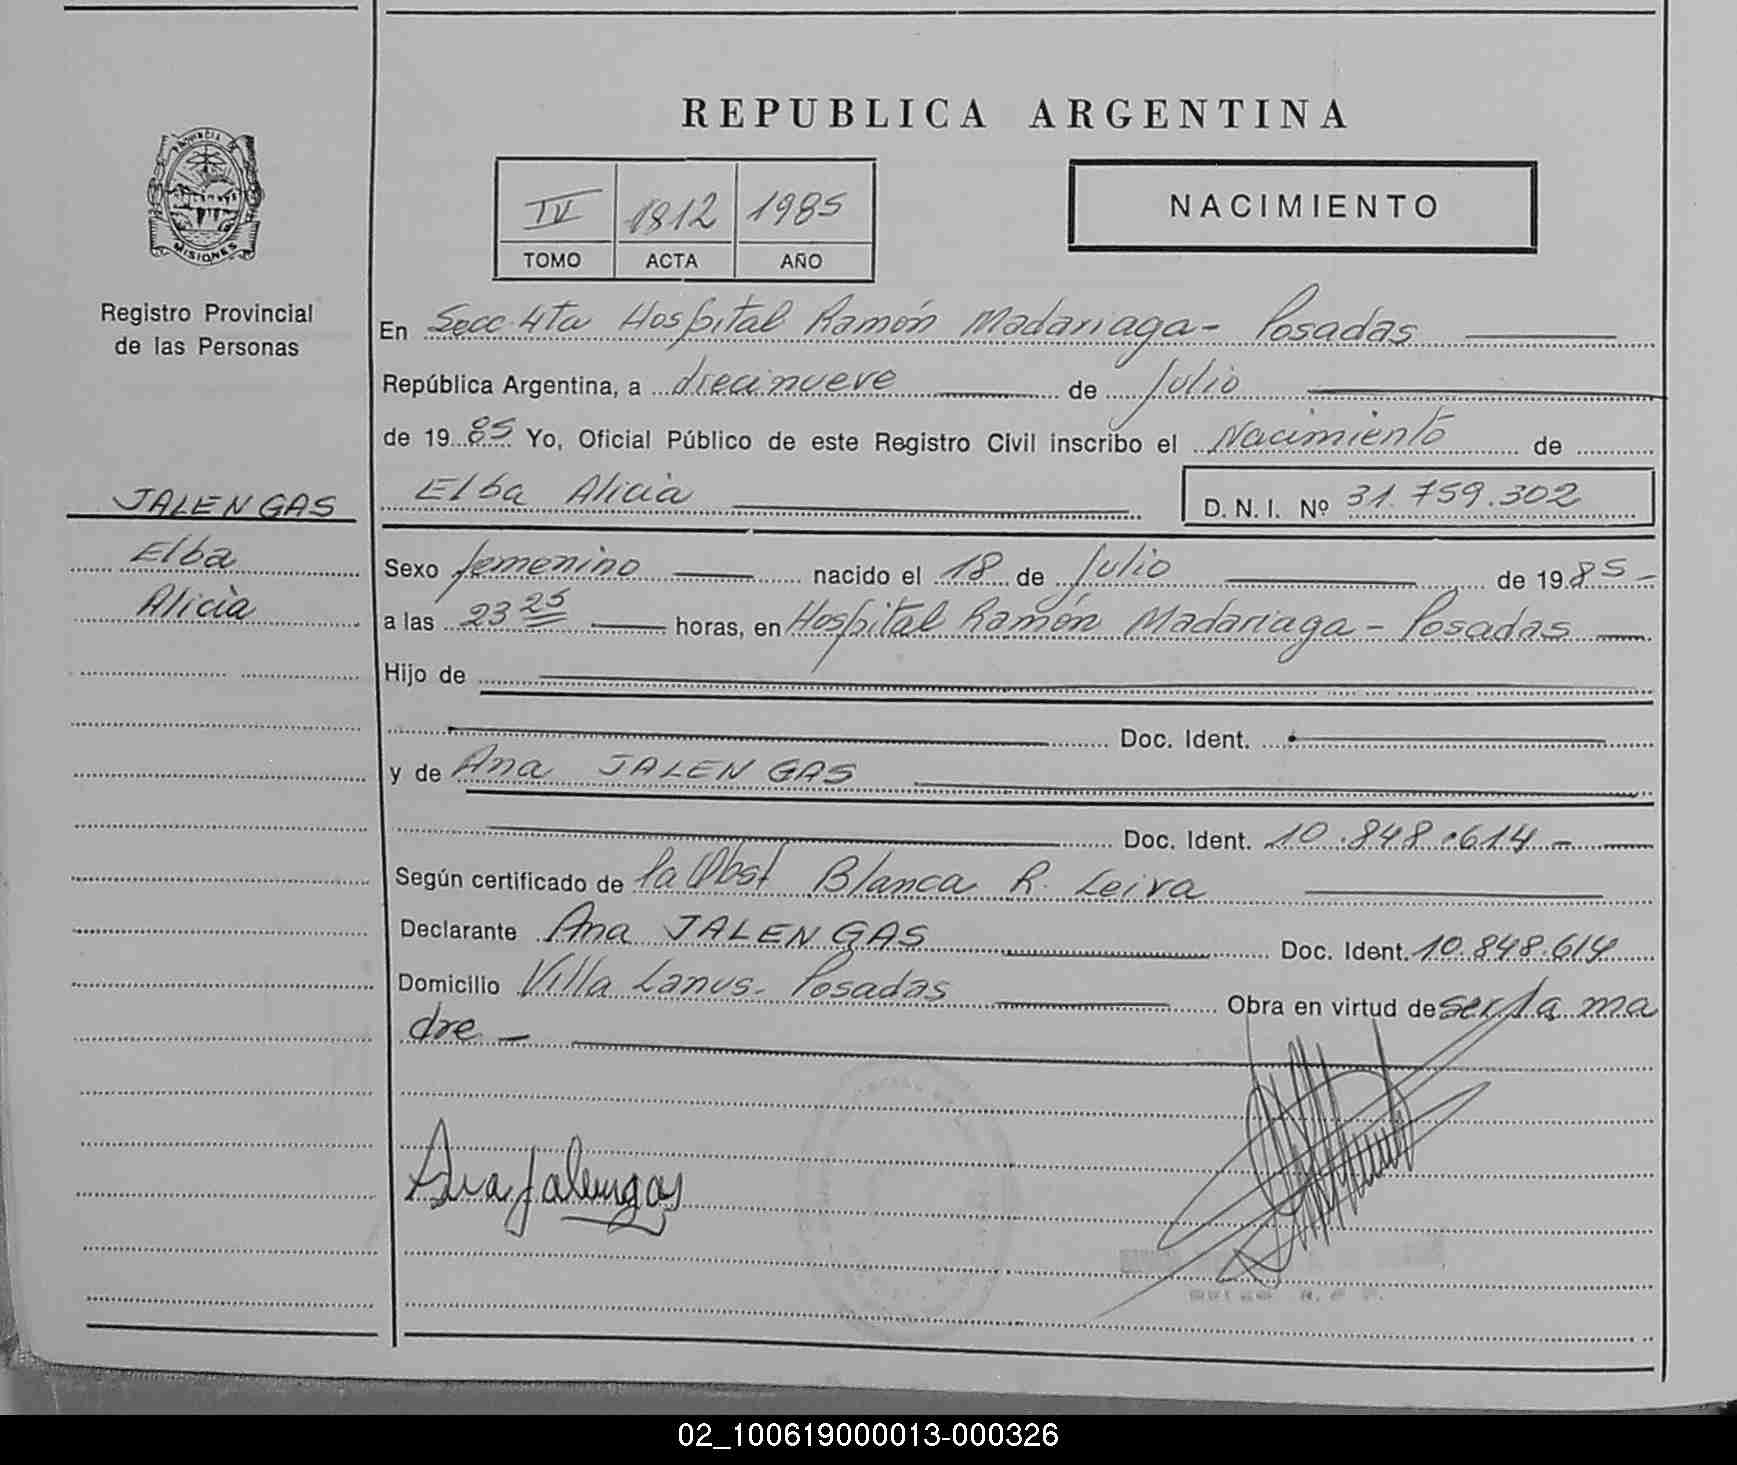 REPUBLICA ARGENTINA
PROVINCIA DE
MISIONES
IV 1812 1985
TOMO ACTA AÑO
NACIMIENTO
Registro Provincial
de las Personas
JALENGAS
Elba
Alicia
En Secc. 4ta Hospital Ramón Madariaga - Posadas
República Argentina, a diecinueve de Julio
de 1985 Yo, Oficial Público de este Registro Civil inscribo el Nacimiento de
Elba Alicia D. N. I. Nº 31.759.302
Sexo femenino nacido el 18 de Julio de 1985 -
a las 23 25 horas, en Hospital Ramón Madariaga - Posadas
Hijo de
Doc. Ident.
y de Ana JALENGAS
Doc. Ident. 10.848.614 -
Según certificado de la Obst Blanca R. Leiva
Declarante Ana JALENGAS Doc. Ident. 10.848.614
Domicilio Villa Lanus - Posadas Obra en virtud de ser la ma
dre -
Ana Jalengas
02_100619000013-000326